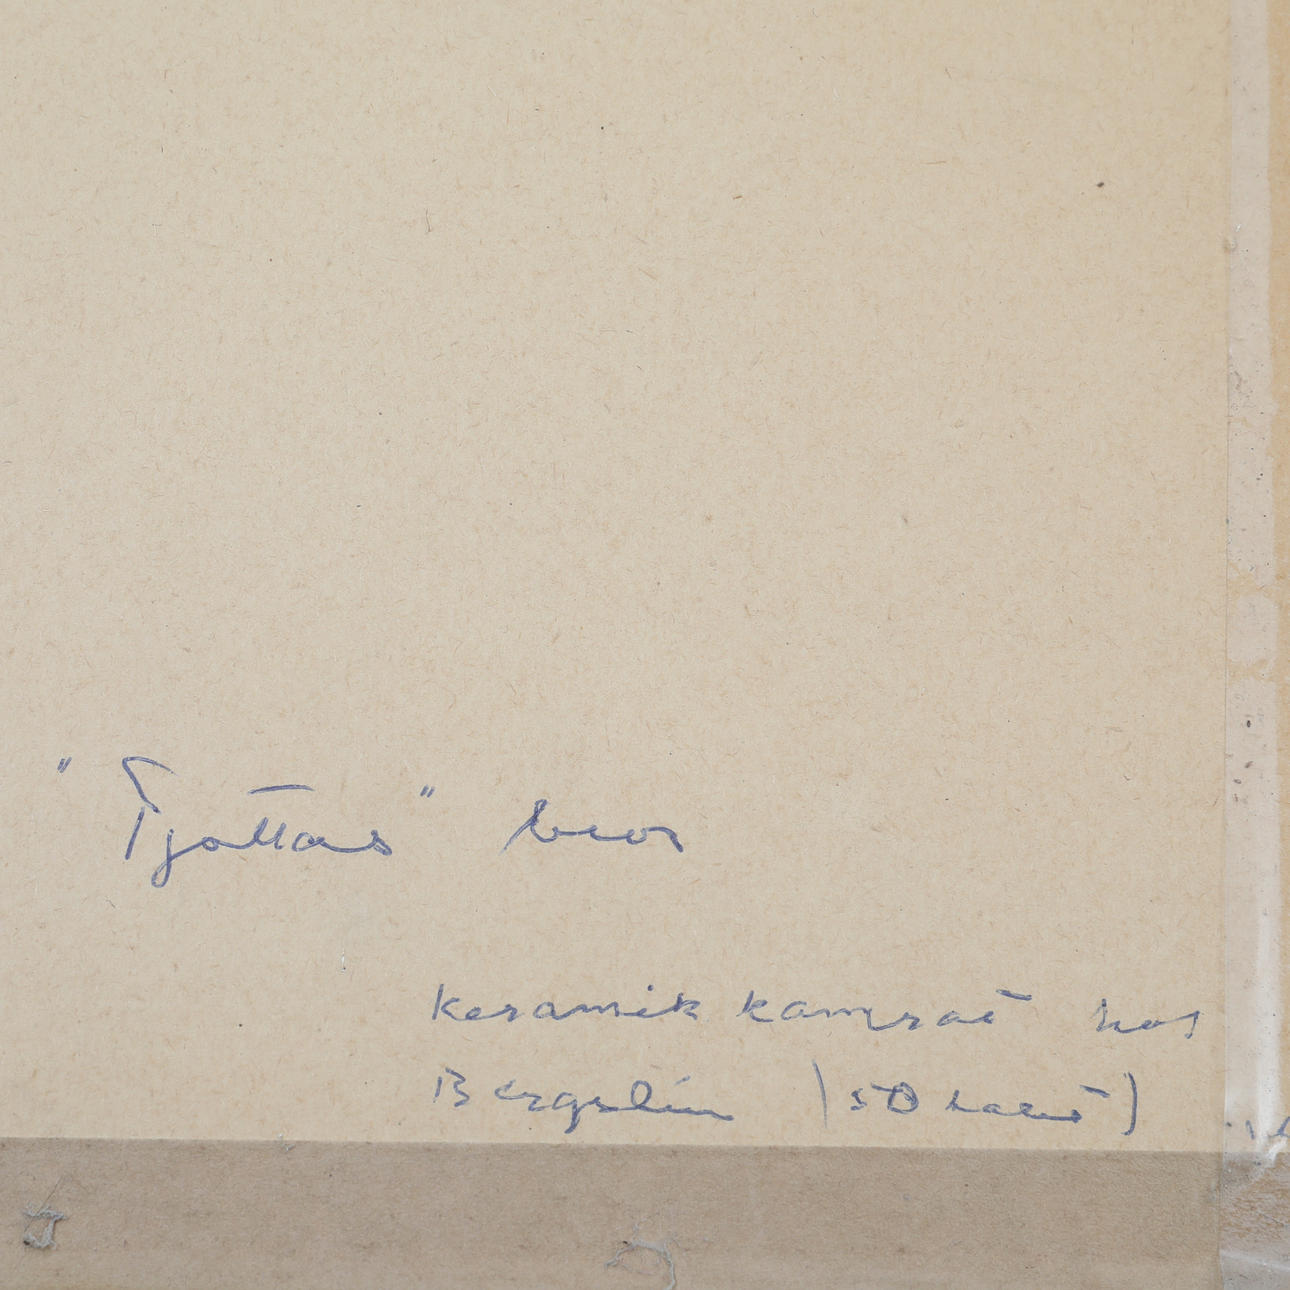 "Tjottas" bror
keramik kamrat hos
Bergslin (50 talet)